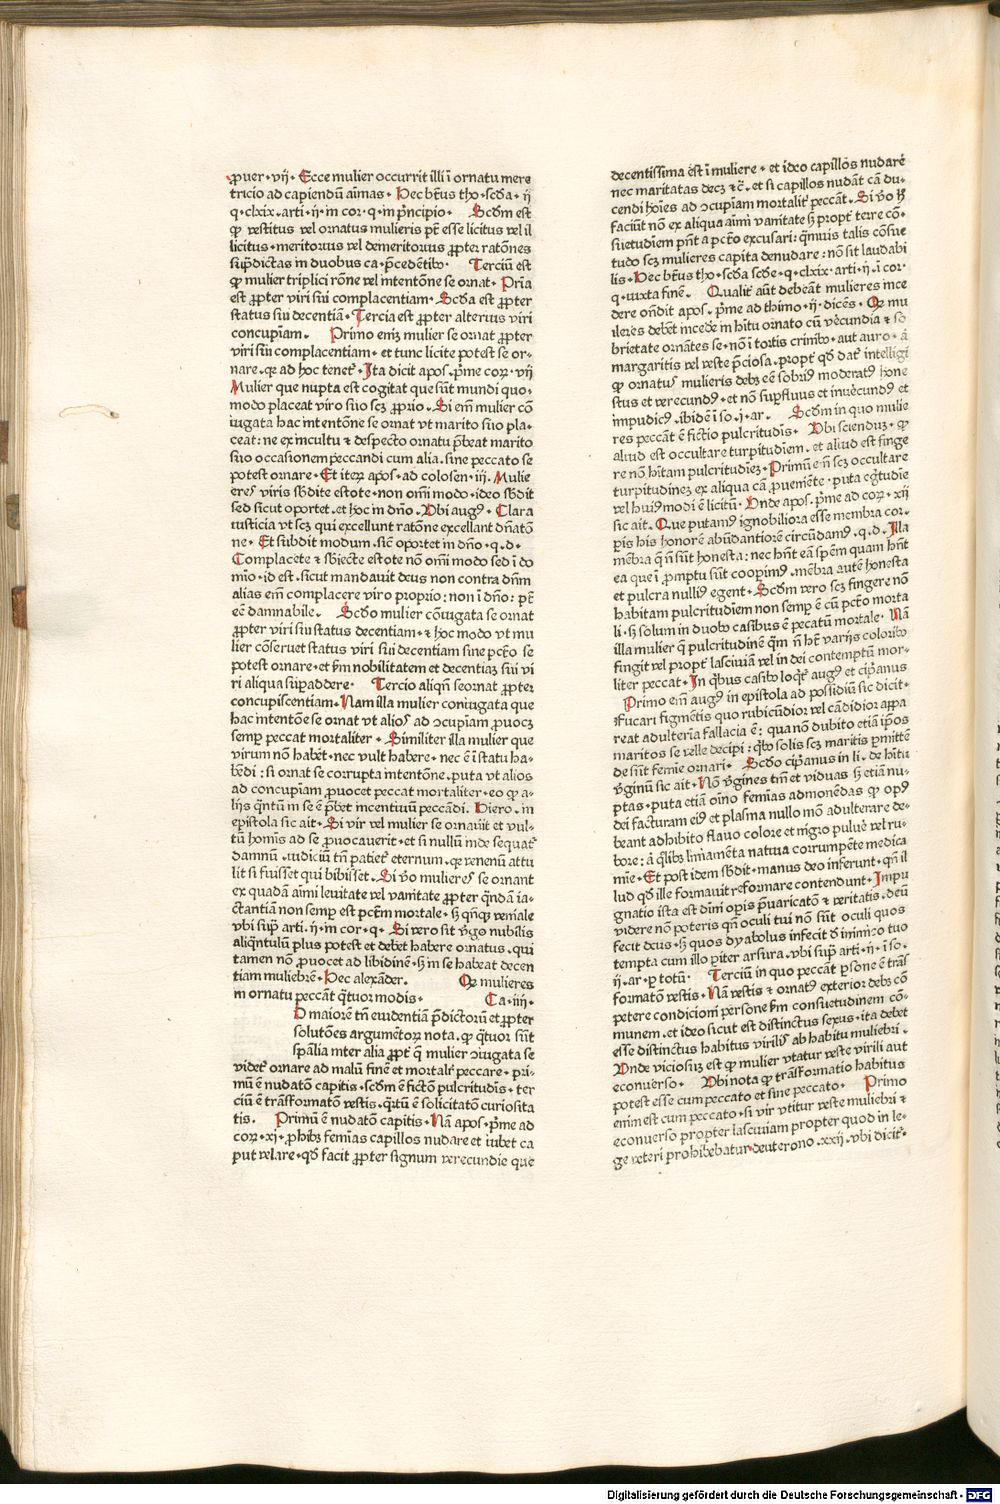 ꝓuer·vij· Ecce mulier occurrit illi ī ornatu mere
tricio ad capiendū aīmas· Hec bt̄us tho·scd̄a· ij
q·clxix·arti·ij·in cor·q·in pͥncipio· Scd̄m est
ꝙ vestitus vel ornatus mulieris pt̄ esse licitus vel il
licitus·meritorius vel demeritorius ꝓpter ratōnes
sup͛dictas in duobus ca·p̄cedētibꝰ· Terciū est
ꝙ mulier triplici rōne vel intentōne se ornat· Prīa
est ꝓpter viri sui complacentiam· Scd̄a est ꝓpter
status sui decentiā·Tercia est ꝓpter alterius viri
concupīam· Primo em̄ mulier se ornat ꝓpter
viri sui complacentiam·et tunc licite potest se or-
nare·qꝛ ad hoc tenet͛·Ita dicit apos·pͥme coꝝ·vij
Mulier que nupta est cogitat que sūt mundi quo-
modo placeat viro suo scꝫ ꝓprio· Si em̄ mulier cō
iugata hac intentōne se ornat vt marito suo pla-
ceat: ne ex incultu ⁊ despecto ornatu p̄beat marito
suo occasionem peccandi cum alia·sine peccato se
potest ornare· Et iteꝝ apos·ad colosen·iij·Mulie
eres viris sb̄dite estote·non om̄i modo·ideo sb̄dit
sed sicut oportet·et hoc in dn̄o·Vbi augꝰ· Clara
iusticia vt scꝫ qui excellunt ratōne excellant dn̄atō
ne· Et subdit modum·sic̄ oportet in dn̄o·q·d·
Complacete ⁊ sb̄iecte estote nō om̄i modo sed ī do
mīo·id est·sicut mandauit deus non contra dn̄m
alias em̄ complacere viro proprio: non ī dn̄o: pt̄
eē damnabile· Scd̄o mulier cōiugata se ornat
ꝓpter viri sui status decentiam·⁊ hoc modo vt mu
lier cōseruet status viri sui decentiam sine pctō se
potest ornare·et ẜm nobilitatem et decentiaꝫ sui vi
ri aliqua suꝑaddere· Tercio aliqn̄ se ornat ꝓpter
concupiscentiam·Nam illa mulier coniugata que
hac intentōe se ornat vt alios ad ɔcupīam ꝓuocꝫ
semꝑ peccat mortaliter· Similiter illa mulier que
virum nō habet·nec vult habere·nec ē ī statu ha-
bēdi: si ornat se corrupta intentōne·puta vt alios
ad concupīam ꝓuocet peccat mortaliter·eo ꝙ a-
lijs qͣntū in se ē p̄bet incentiuū peccādi· Hiero·in
epīstola sic ait· Si vir vel mulier se ornauit et vul-
tū homīs ad se ꝓuocauerit·et si nullū inde sequat͛
damnū·iudiciū tn̄ patiet͛ eternum·qꝛ venenū attu
lit si fuisset qui bibisset· Si v̊o mulieres se ornant
ex quadā aīmi leuitate vel vanitate ꝓpter qͣndā ia-
ctantiā non semꝑ est pct̄m mortale·sꝫ qn̄qꝫ veniale
vbi suꝑ arti·ij·in cor·q· Si vero sit v͛go nubilis
aliqͣntulū plus potest et debet habere ornatus·qui
tamen nō ꝓuocet ad libidinē·sꝫ in se habeat decen
tiam muliebrē·Hec alexāder· Qꝛ mulieres
in ornatu peccāt qͣtuor modis· Ca·iiij·
D maiorē tn̄ euidentiā p̄dictorū et ꝓpter
solutōes argumētoꝝ nota·ꝙ qͣtuor sūt
spālia inter alia ꝓpt͛ q̄ mulier ɔiugata se
videt͛ ornare ad malū finē et mortalr̄ peccare·pri-
mū ē nudatō capitis·scd̄m ē fictō pulcritudīs·ter
ciū ē trāsformatō vestis·qͣrtū ē solicitatō curiosita
tis· Primū ē nudatō capitis·Nā apos·pͥme ad
coꝝ·xi·ꝓhibꝫ femīas capillos nudare et iubet ca
put velare·qd̄ facit ꝓpter signum verecundie que
decentissima est ī muliere·et ideo capillos nudare
nec maritatas decꝫ ⁊c̄·et si capillos nudāt cā du-
cendi hoīes ad ɔcupīam mortalit͛ peccāt· Si v̊o ꝫ
faciūt nō ex aliqua aīmi vanitate sꝫ propt͛ terre cō-
suetudīem pn̄t a pctō excusari: qͣmuis talis cōsue
tudo scꝫ mulieres capita denudare: nō sit laudabi
lis·Hec bt̄us tho·scd̄a scd̄e·q·clxix·arti·ij·ī cor·
q·iuxta finē· Qualit͛ aūt debeāt mulieres ince
dere on̄dit apos·pͥme ad thimo·ij·dicēs· Qꝛ mu
lieres debēt incede͛ in hītu ornato cū v͛ecundia ⁊ so
brietate ornātes se·nō ī tortis crinibꝰ·aut auro·a̅
margaritis vel veste p̄ciosa·propt͛ qd̄ dat͛ intelligi
ꝙ ornatus mulieris debꝫ eē sobriꝰ moderatꝰ hone
stus et verecundꝰ·et nō suꝑfluus et inuerecundꝰ et
impudicꝰ·ibidē ī so·j·ar· Scd̄m in quo mulie
res peccāt ē fictio pulcritudīs· Vbi sciendū· ꝙ
aliud est occultare turpitudīem·et aliud est finge
re nō hītam pulcritudīeꝫ·Primū em̄ scꝫ occultare
turpitudineꝫ ex aliqua cā ꝓueniēte·puta egͥtudīe
vel huiꝰmodi ē licitū·Vnde apos·pͥme ad coꝝ·xij
sic ait· Que putamꝰ ignobiliora esse membra cor-
ꝑis his honorē abūdantiorē circūdamꝰ·q·d·Illa
mēbra q̄ nō sūt honesta: nec hn̄t eā spēm quam hn̄t
ea que ī promptu sūt cooꝑimꝰ·mēbra autē honesta
et pulcra nulliꝰ egent· Scd̄m vero scꝫ fingere nō
habitam pulcritudīem non semꝑ ē cū pctō morta
li·sꝫ solum in duobꝰ casibus ē pecatū mortale· Nā
illa mulier q̄ pulcritudinē qͣm nō hꝫ varijs coloribꝰ
fingit vel propt͛ lasciuiā vel in dei contemptū mor-
liter peccat·In qͥbus casibꝰ loqͥt͛ augꝰ et cipͥanus
Primo em̄ augꝰ in epistola ad possidiū sic dicit·
Fucari figmētis quo rubicūdior vel cādidior appa
reat adulteria fallacia ē: qua nō dubito etiā ip̄os
maritos se velle decipi: qͥbꝰ solis scꝫ maritis ꝑmittē
de sūt femīe ornari· Scd̄o cipͥanus in li·de hītu
v͛ginū sic ait·Nō v͛gines tm̄ et viduas sꝫ etiā nu-
ptas·puta etiā oīno femīas admonēdas ꝙ opꝰ
dei facturam eiꝰ et plasma nullo mō adulterare de-
beant adhibito flauo colore et nigro puluēe vel ru-
bore: a̅ qͦlibꝫ linīamēta natiua corrumpēte medica
mīe·Et post idem sb̄dit·manus deo inferunt·qn̄ il
lud qd̄ ille formauit reformare contendunt·Impu
gnatio ista est diuīi oꝑis p̄uaricatō ⁊ veritatis·deū
videre nō poteris qn̄ oculi tui nō sūt oculi quos
fecit deus·sꝫ quos dyabolus infecit d̄ inimīco tuo
tempta cum illo ꝑiter arsura·vbi suꝑ arti·ij·ī so·
ij·ar·ꝑ totū· Terciū in quo peccāt ꝑsone ē trās
formatō vestis·Nā vestis ⁊ ornatꝰ exterior debꝫ cō
petere condicioni persone ẜm consuetudinem cō-
munem·et ideo sicut est distinctus sexus·ita debet
esse distinctus habitus virilis ab habitu muliebri·
Vnde viciosuꝫ est ꝙ mulier vtatur veste virili aut
econuerso· Vbi nota ꝙ trāsformatio habitus
potest esse cum peccato et sine peccato· Primo
enim est cum peccato·si vir vtitur veste muliebri ⁊
econuerso propter lasciuiam propter quod in le-
ge veteri prohibebatur·deuterono·xxij·vbi dicit͛·
Digitalisierung gefördert durch die Deutsche Forschungsgemeinschaft - DFG